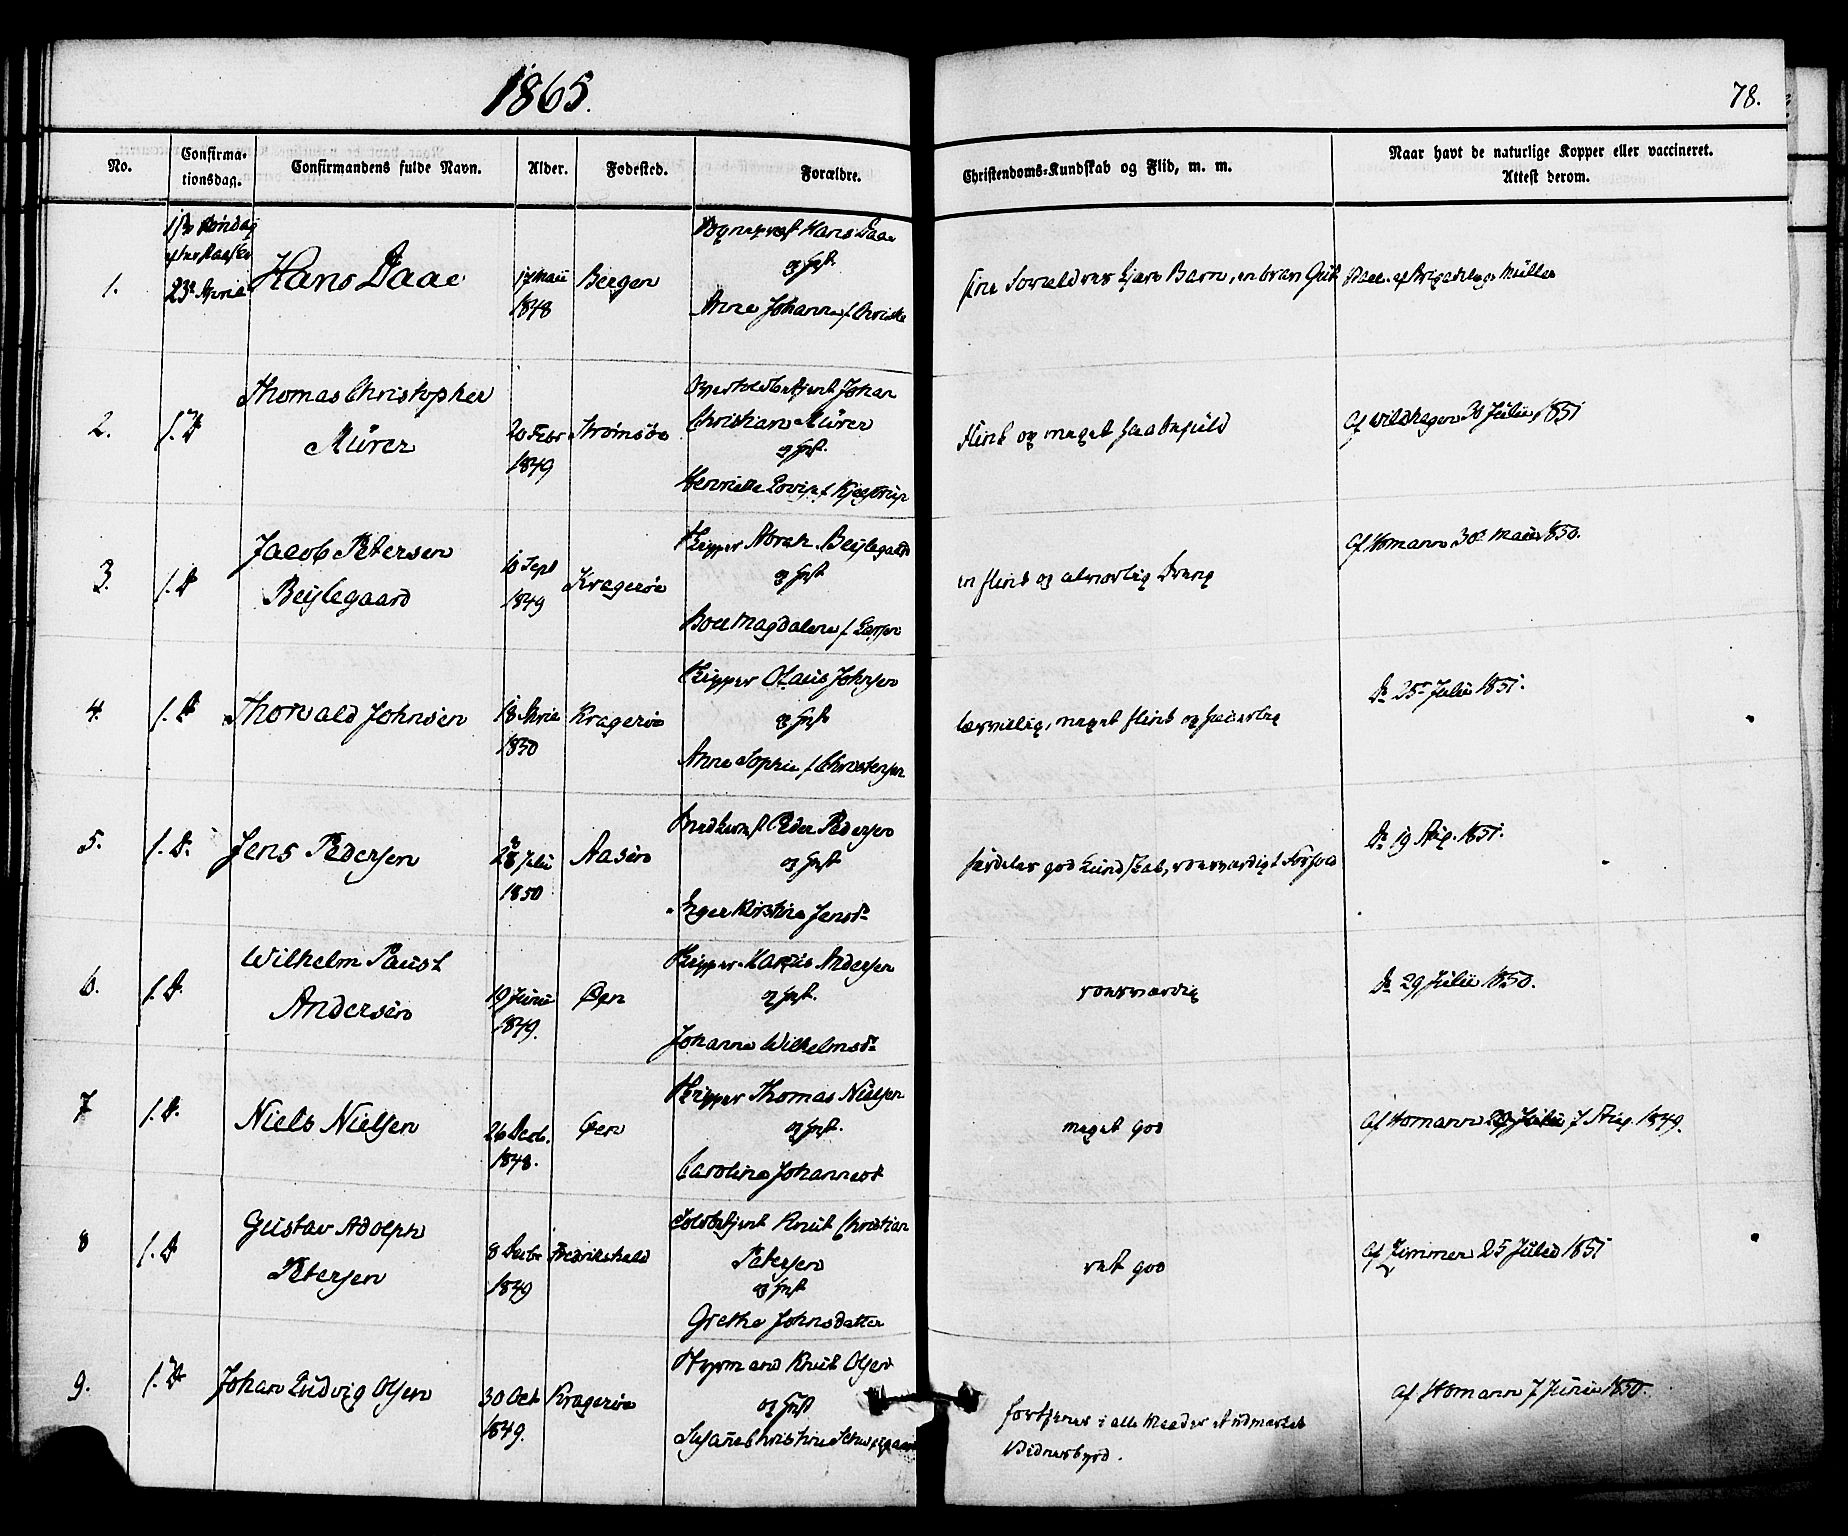 1865.
78.
No.
Confirma-
tionsdag.
Confirmandens fulde Navn.
Alder.
Fødested.
Forældre.
Christendoms-Kundskab og Flid, m. m.
Naar havt de naturlige Kopper eller vaccineret.
Attest derom.
1.
Søndag
efter Paaske
23de April
Hans Daae
17 Maii
1848
Bergen
Sognepræst Hans Daae
og Hust.
Anne Johanne f. Christie
sine Forældres kjære Barn, en brav Gut
Vacc. af Brigadelæge Müller
2.
f. D
Thomas Christopher
Mürer
20 Febr
1849
Strømsøe
Johan
Christian Mürer
og Hust.
Henriette Lovise f.
flink og meget haabefuld
af Wildhagen 30 Julii 1851
3.
f. D
Jacob Petersen
Bejlegaard
10 Sept
1849
Kragerøe
Skipper Beijlegaard
og Hust
Boel Magdalene f. Larsen
en flink og alvorlig Dreng
af Homann 30te Maii 1850.
4.
f. D
Thorvald Johnsen
18 April
1850
Kragerøe
Skipper Olaus Johnsen
og Hust
Anne Sophie f. Christensen
lærvillig, meget flink og hæderlig
Do 25de Julii 1851.
5.
f. D.
Jens Pedersen
28 Julii
1850
Aasen
Peder Pedersen
og Hust
Inger Kirstine Jensdr
særdeles god Kundskab, roesværdigt Forhold
Do 19 Aug. 1851.
6.
f. D.
Wilhelm Faust
Andersen
19 Junii
1849.
Øen
Skipper Andersen
og Hust.
Johanne Wilhelmsdr
roesværdig
Do 29 Julii 1850.
7
f. D.
Niels Nielsen
26 Decb.
1848.
Øen
Skipper Thomas Nielsen
og Hust.
Caroline Johannesd
meget god
af Homann 7 Aug. 1849.
8
f. D
Gustav Adolph
Petersen
8 Decbr
1849
Fredrikshald
Toldbetjent Knut Christian
Petersen
og Hust
Grethe Johnsdatter
ret god
af Zimmer 25 Julii 1851
9.
f. D
Johan Ludvig Olsen
30 Oct
1849.
Kragerøe
Styrmand Knut Olsen
og Hust
Susanne Christine
fortjener i alle Maader Udmærket
Vidnesbyrd.
af Homann 7 Junii 1850.